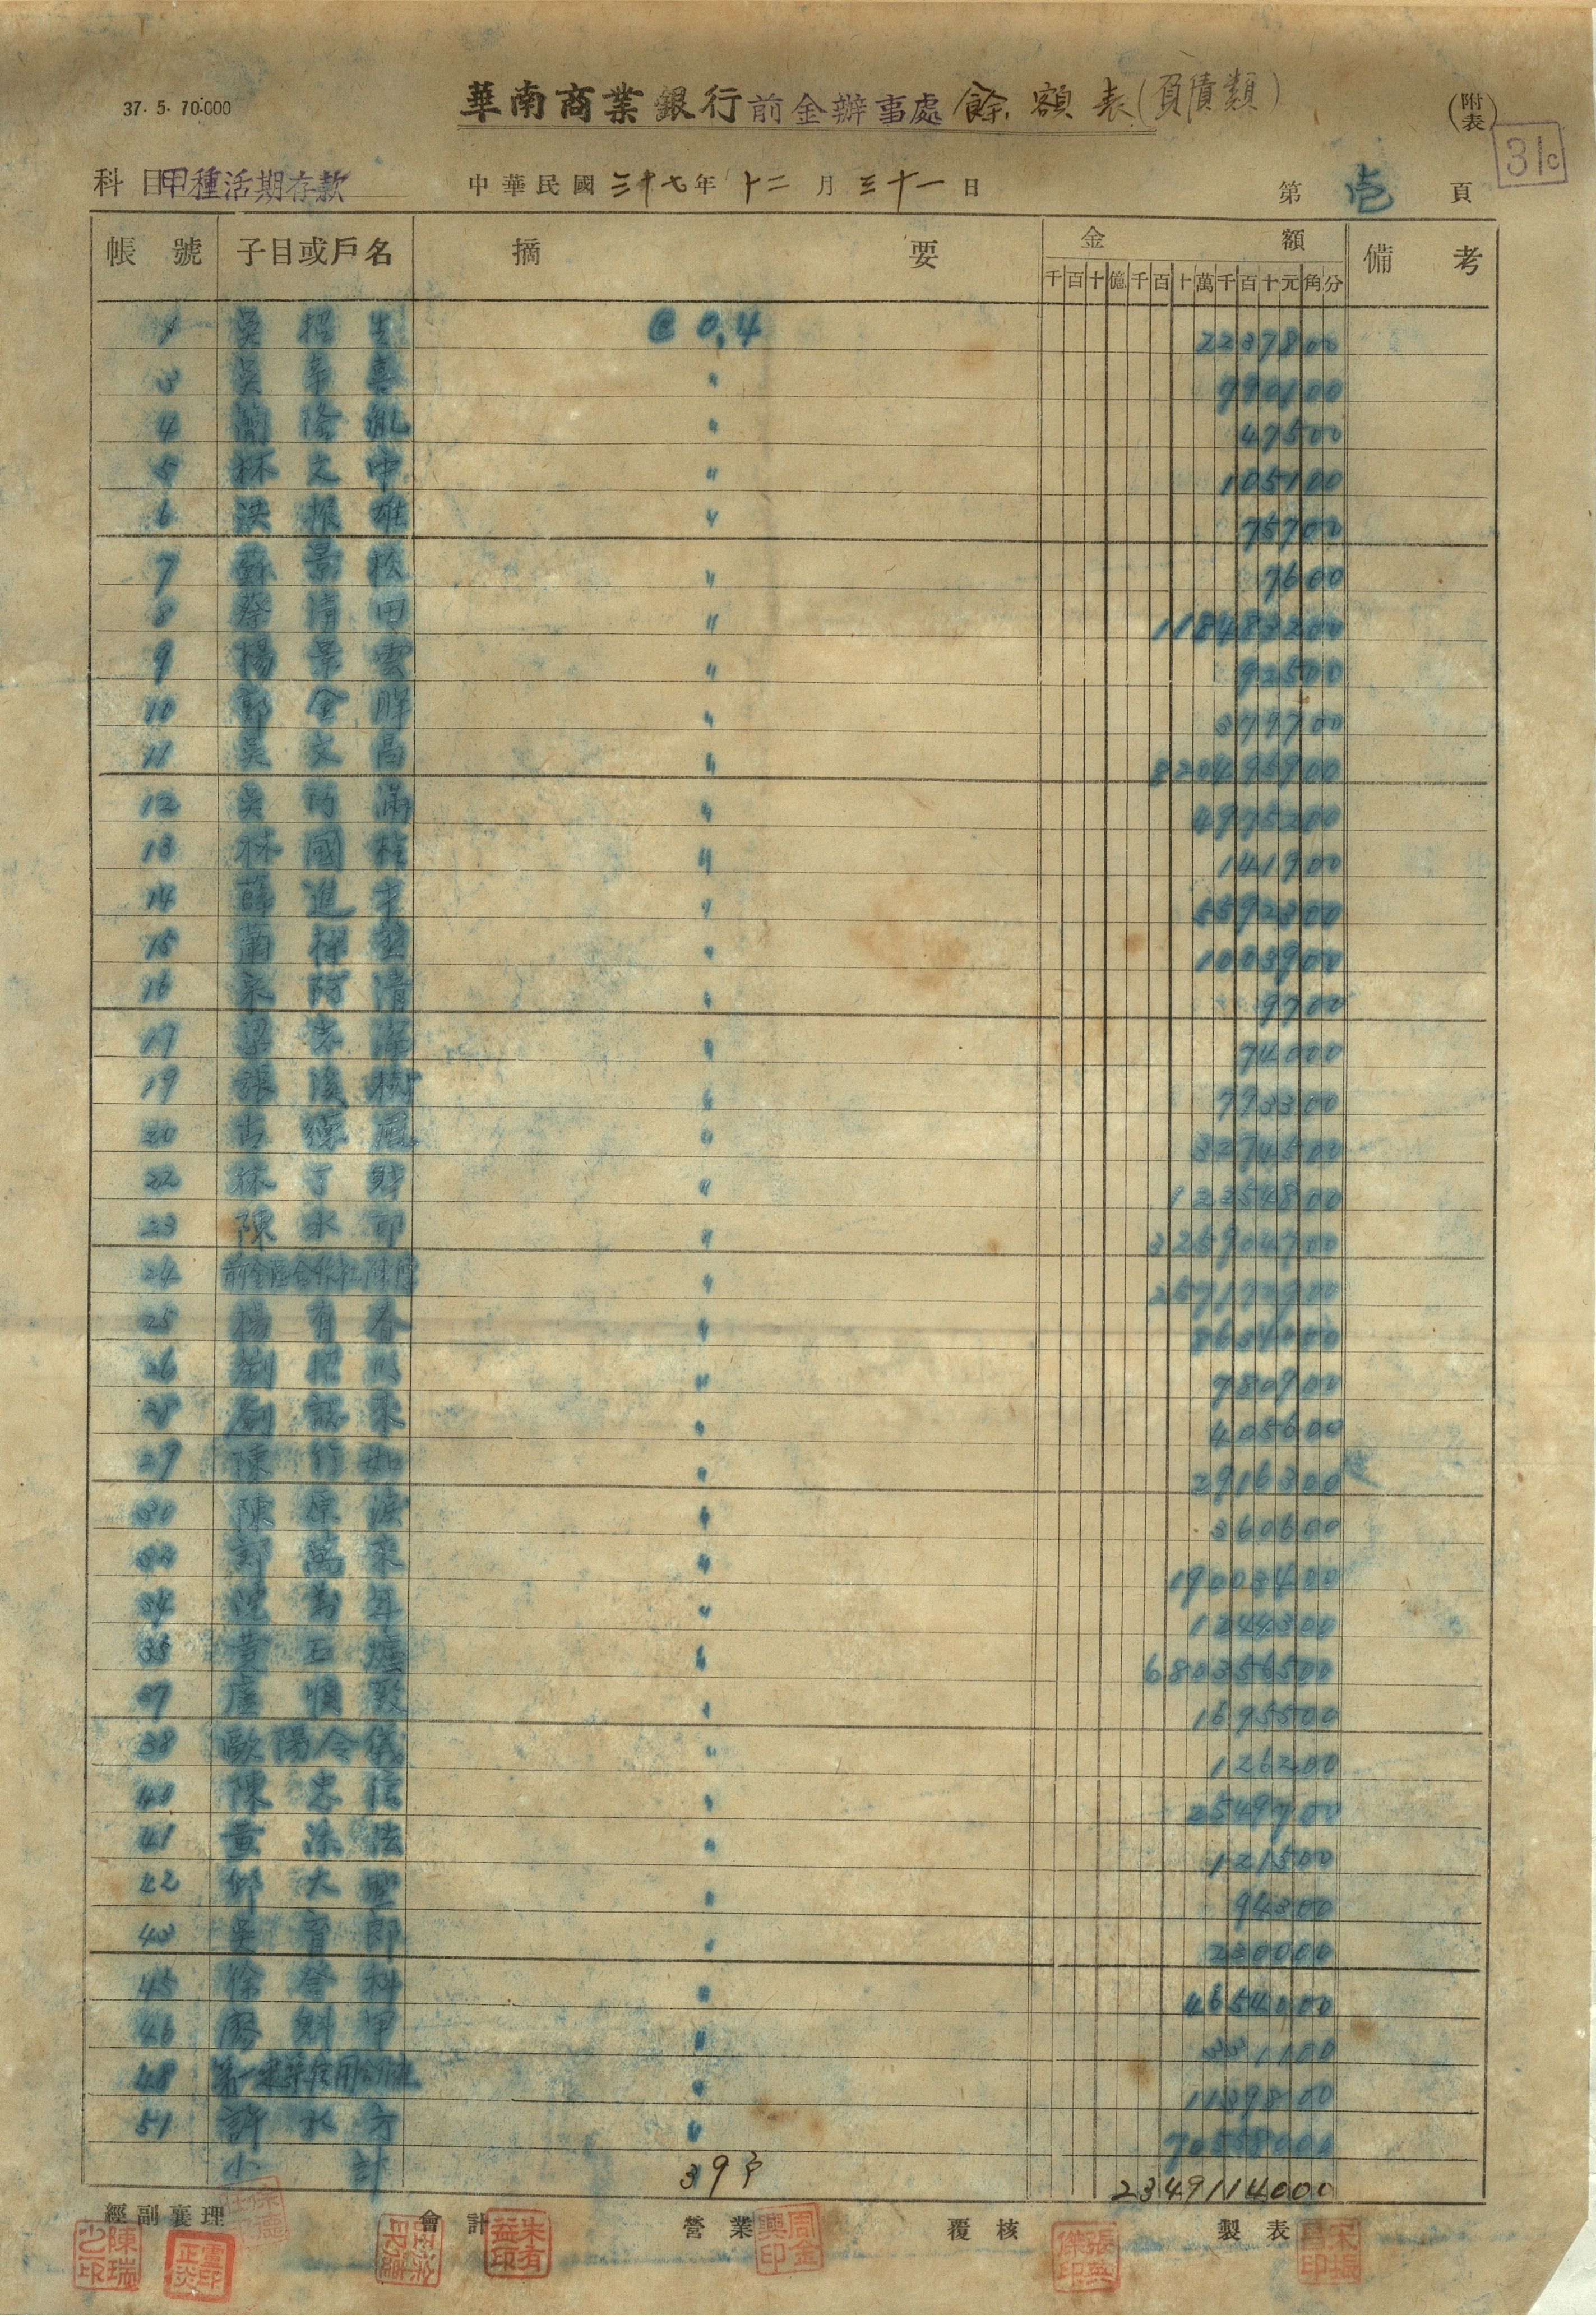 37. 5. 70.000
華南商業銀行前金辦事處餘額表(負債類)
(附表)
31c
科目甲種活期存款 中華民國三十七年十二月三十一日 第壱頁
帳號 子目或戶名 摘要 金額 備考
千百十億千百十萬千百十元角分
1 吳招生 @0.4 2237800
3 吳辛喜 〃 790100
4 簡隆 〃 47500
5 林文中 〃 105100
6 洪振雄 〃 75700
7 蘇景松 〃 7600
8 蔡清田 〃 118483200
9 楊景雲 〃 92500
10 郭金 〃 379700
11 吳文昌 〃 820495900
12 吳阿滿 〃 4975200
13 林國柱 〃 141900
14 薛進 〃 5592300
15 蕭 〃 1003900
16 宋阿清 〃 9700
17 梁 〃 74000
19 張溪樹 〃 773300
20 古德 〃 3274500
22 林丁財 〃 12354800
23 陳水印 〃 325904700
24 前金區合作社 〃 257172900
25 楊有春 〃 8634000
26 劉招明 〃 780900
28 劉認來 〃 405600
29 陳竹如 〃 2916300
30 陳原 〃 360600
33 郭萬來 〃 19003400
34 萬年 〃 1244300
35 黃石 〃 680356500
37 盧順致 〃 1695500
38 歐陽令儀 〃 126200
40 陳忠信 〃 2549700
41 黃添法 〃 121500
42 邱大 〃 94300
43 吳育郎 〃 230000
45 徐登科 〃 4654000
46 廖魁甲 〃 331100
48 第一建築信用合作社 〃 1139800
51 許水方 〃 70558000
小計 39戶 2349114000
經副襄理 會計 營業 覆核 製表
陳瑞 朱有益印 周金興印 張英傑印